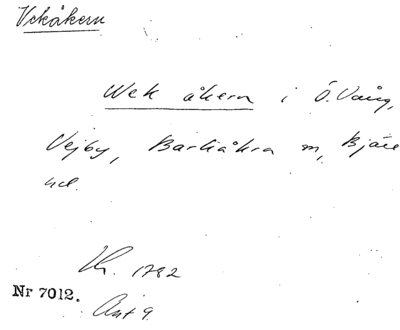 Vekåkern
Wek åkern i Ö. Vång,
Vejby, Barkåkra m, Bjäre
hd.
Kh. 1782
Nr 7012.
Akt 9